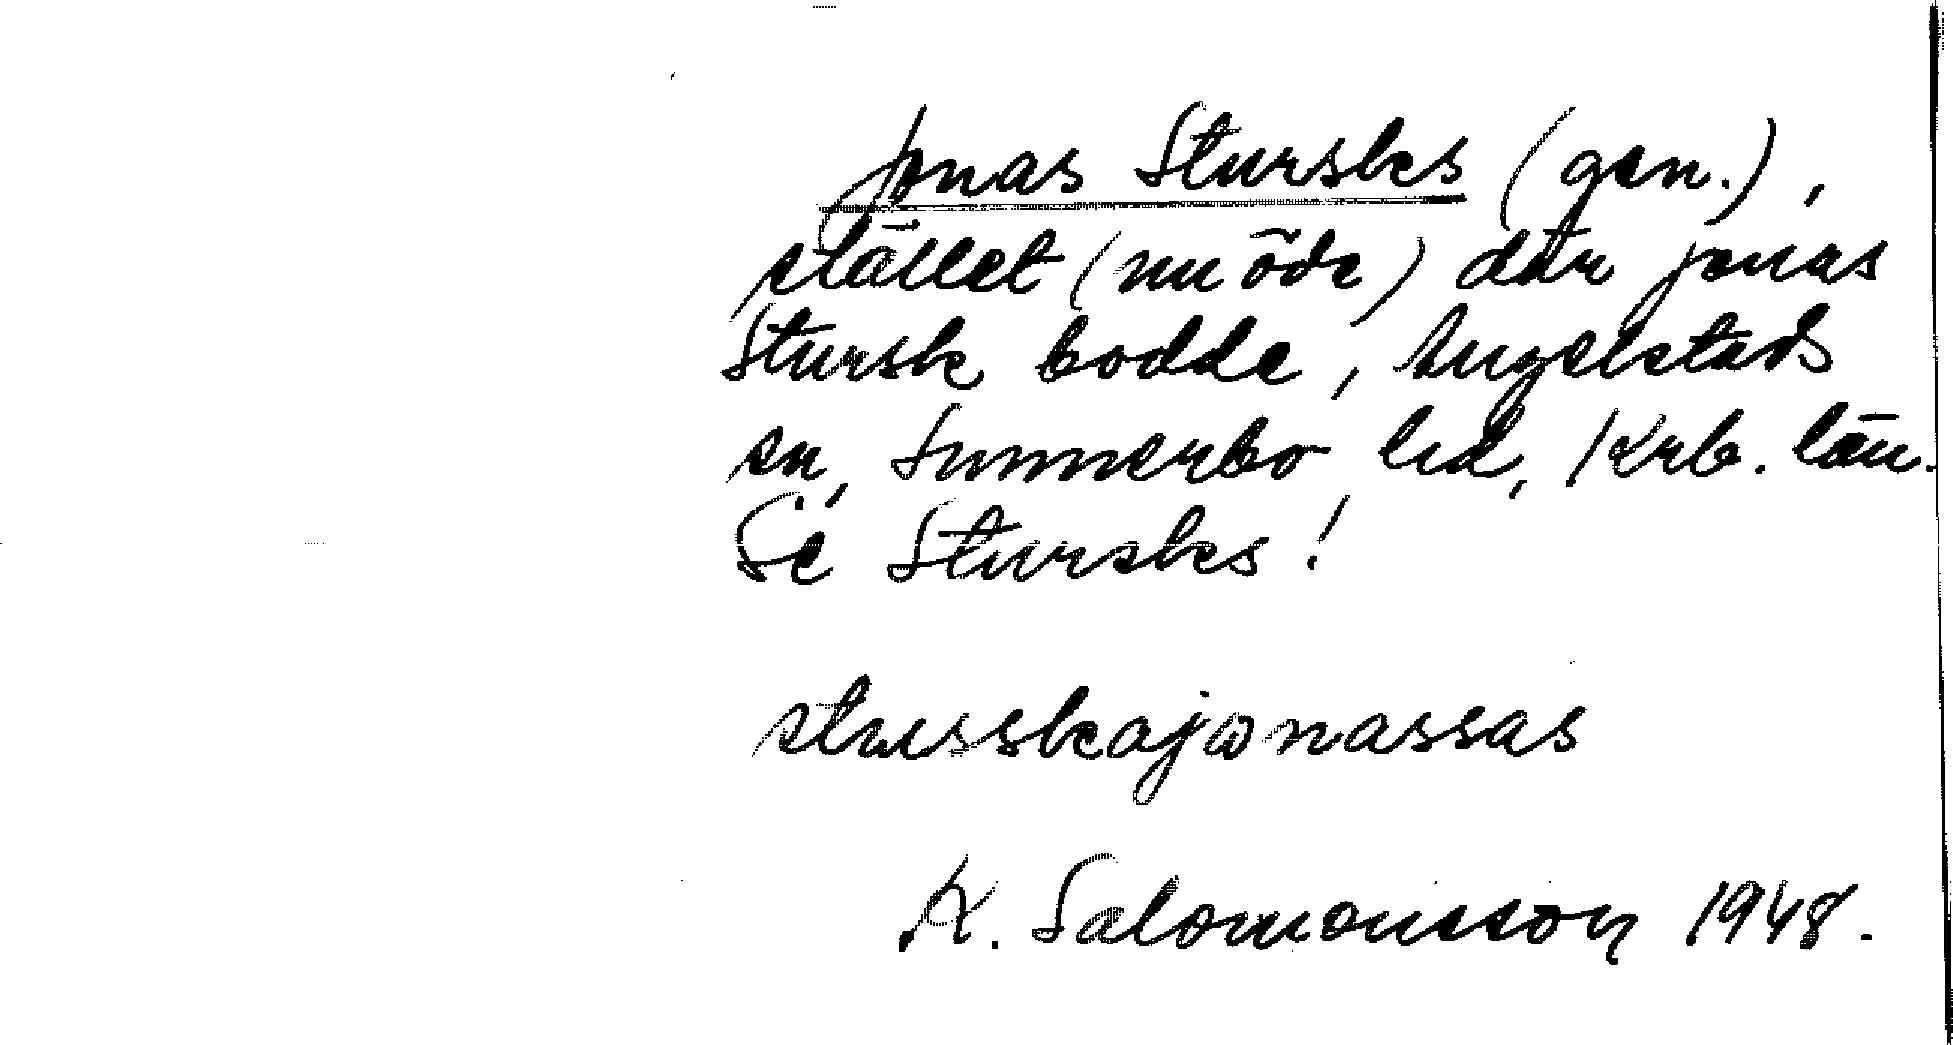 Jonas Sturskes (gen.),
stället (nu öde) där Jonas
Stursk bodde, Angelstads
sn, Sunnerbo hd, Krb. län.
Se Sturskes!
stusskajωnassas
K. Salomonsson 1948.